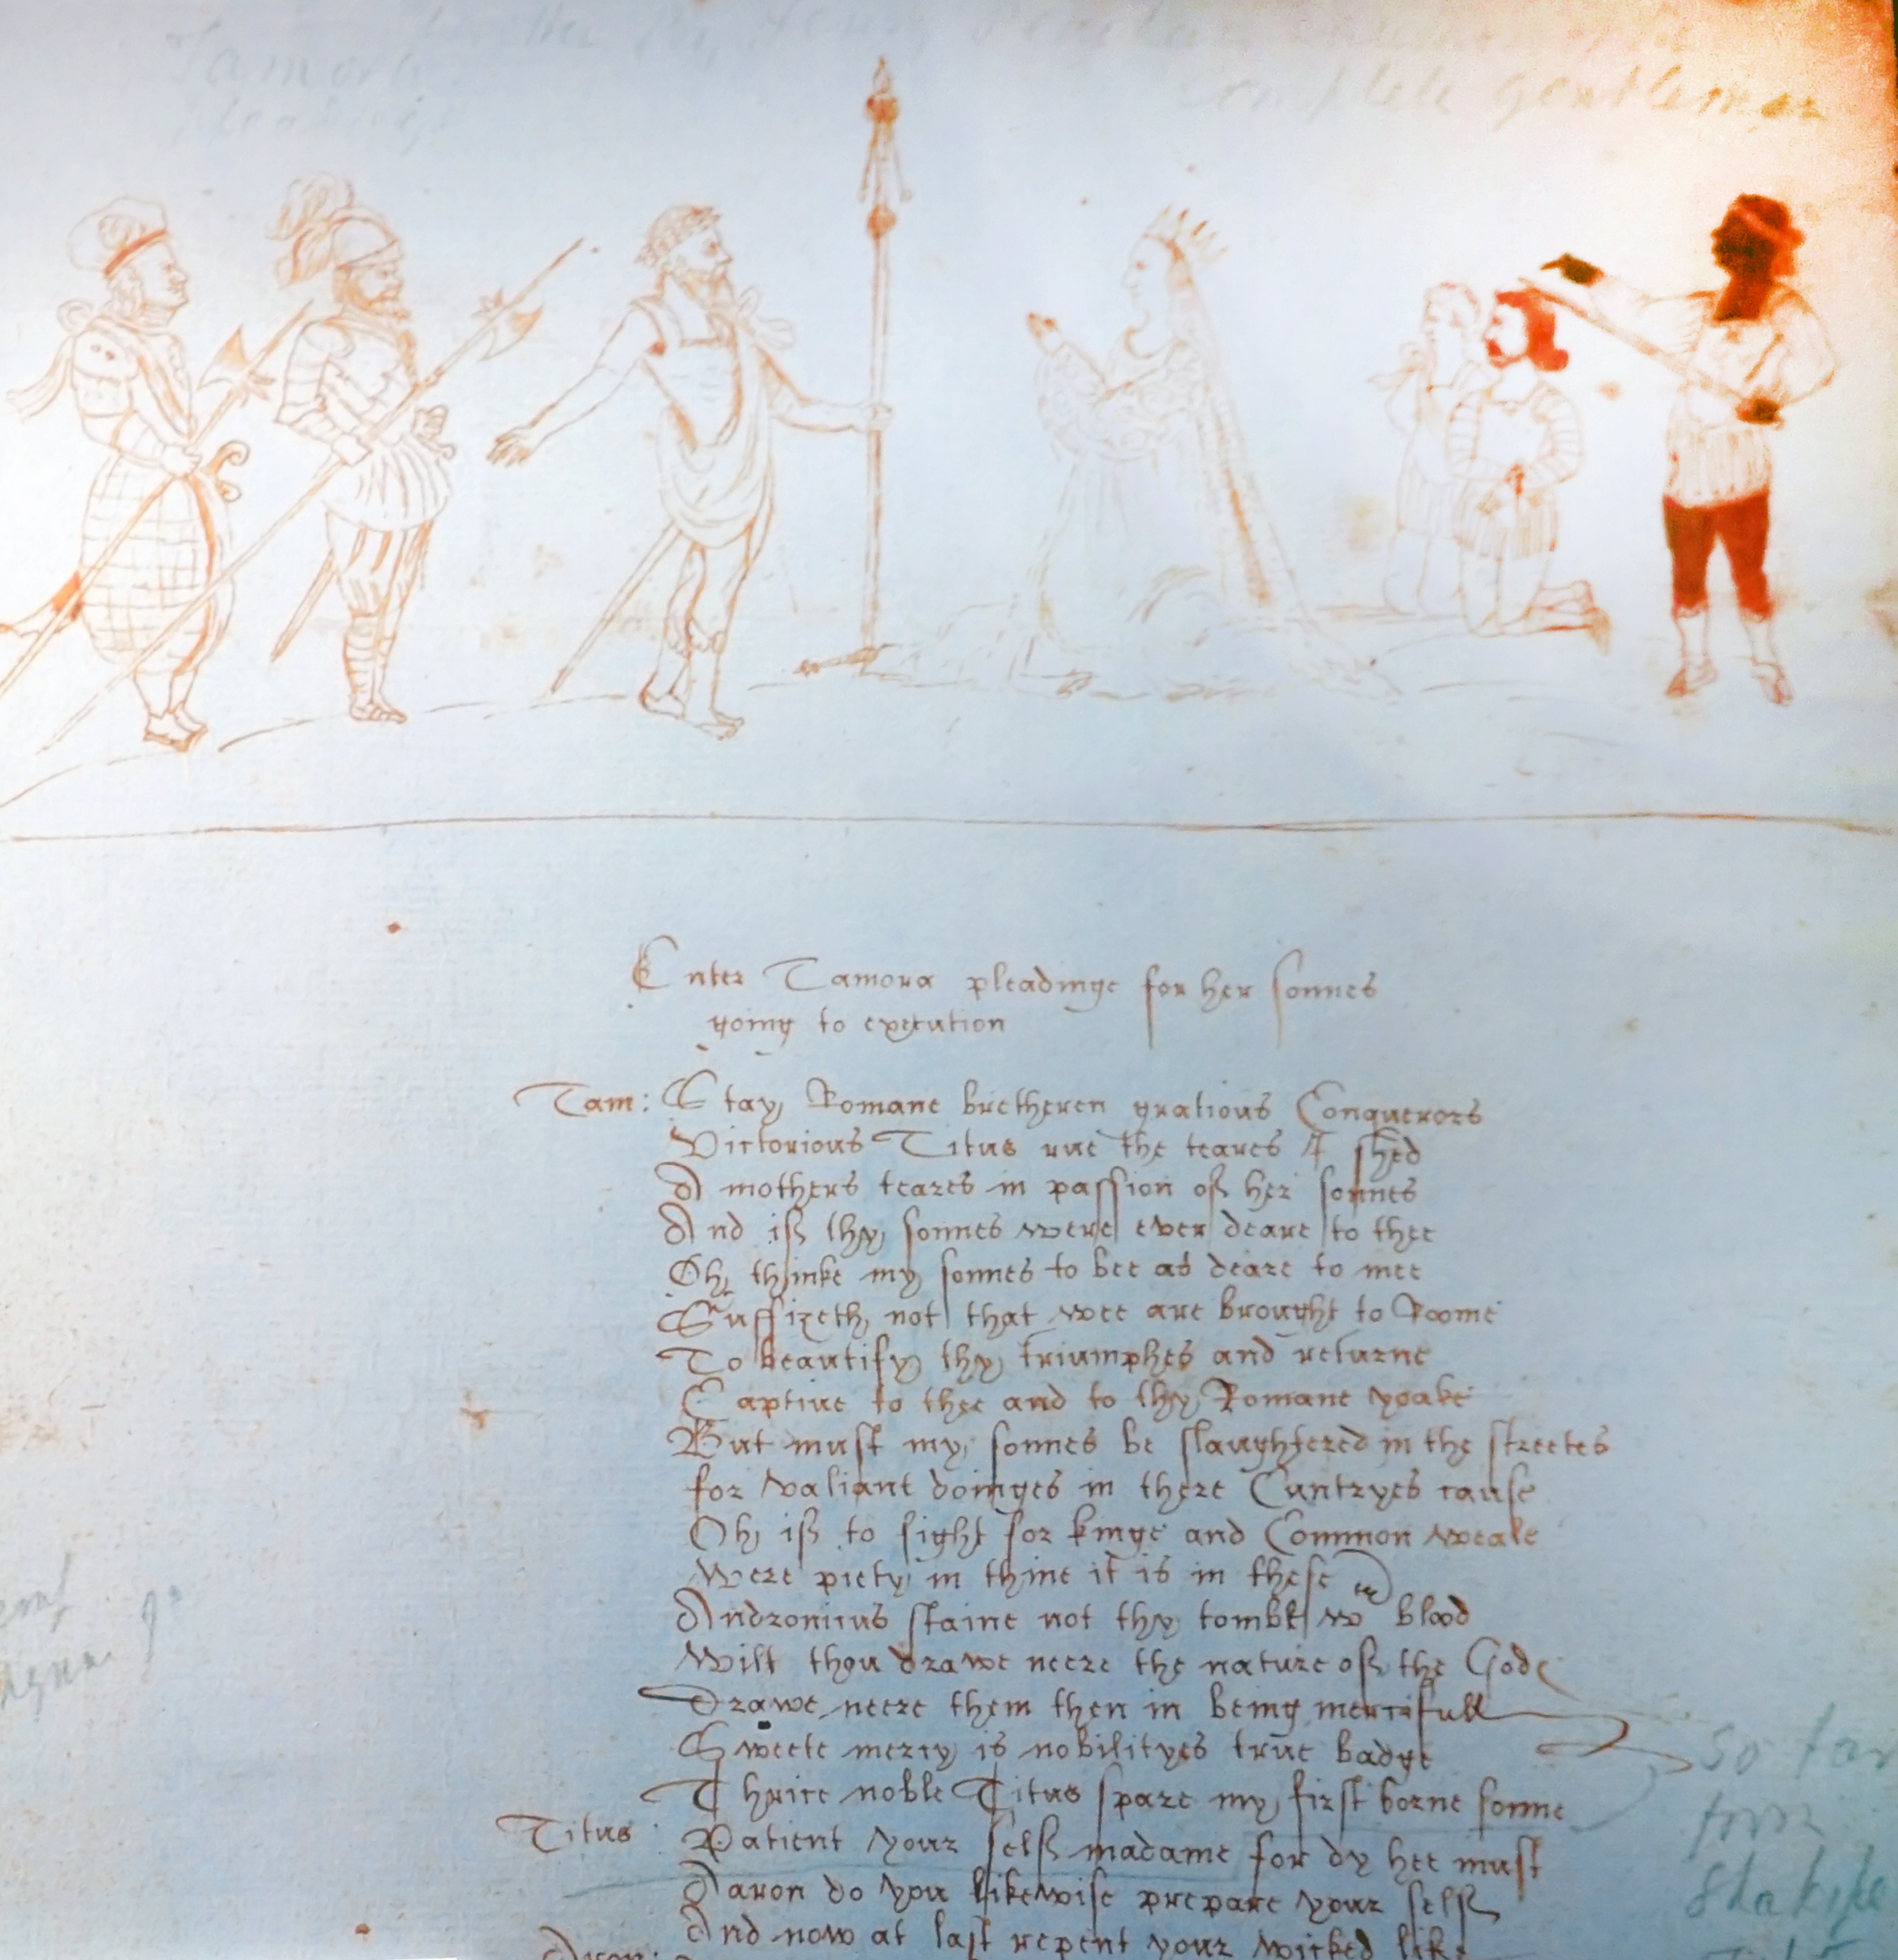 Tamora
pleading
complete gentleman
Enter Tamora pleadinge for her sonnes
going to execution
Tam: Stay Romane bretheren gratious Conquerors
Victorious Titus rue the teares I shed
A mothers teares in passion of her sonnes
And if thy sonnes were ever deare to thee
Oh thinke my sonnes to bee as deare to mee
Suffizeth not that wee are brought to Roome
To beautify thy triumphes and returne
Captiue to thee and to thy Romane yoake
But must my sonnes be slaughtered in the streetes
for valiant doinges in there Cuntryes cause
Oh if to fight for kinge and Common weale
Were piety in thine it is in these
Andronicus staine not thy tombe wth blood
Wilt thou drawe neere the nature of the Gods
Drawe neere them then in being mercifull
Sweete mercy is nobilityes true badge
Thrice noble Titus spare my first borne sonne
Titus: Patient your self madame for dy hee must
Aaron do you likewise prepare your self
And now at last repent your wicked life
Aron:
so far
from
Shakspe